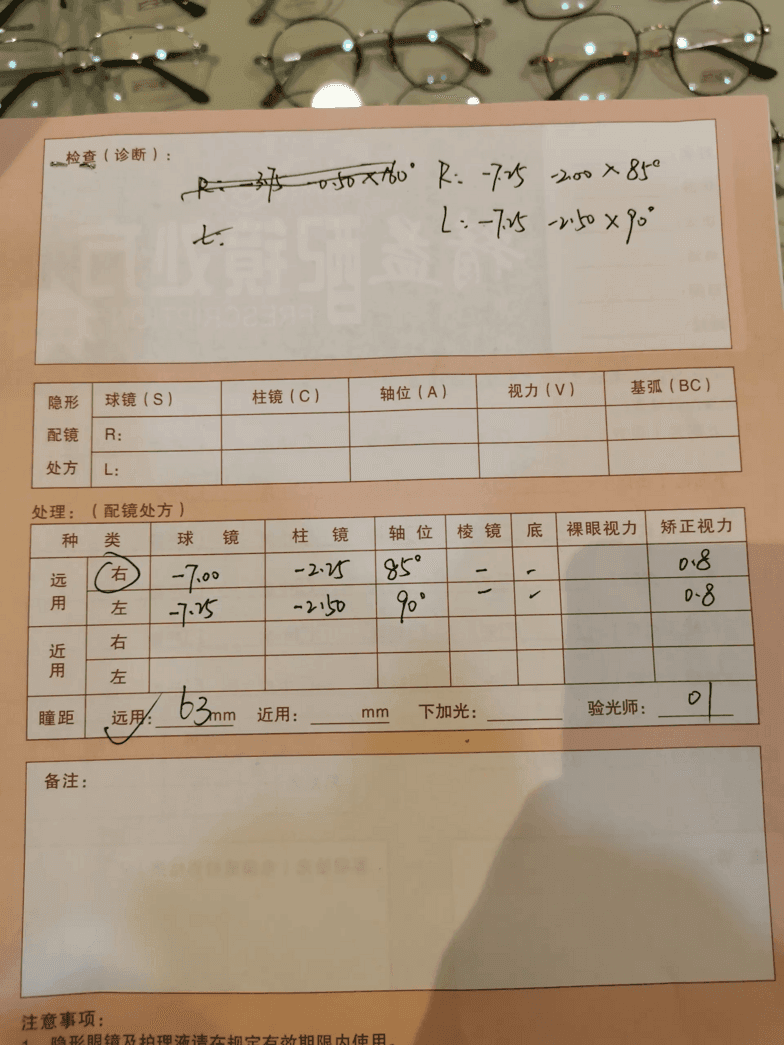 检查(诊断):
R: -3.75 -0.50×160° R: -7.25 -2.00×85°
L: L: -7.25 -2.50×90°
隐形配镜处方 球镜(S) 柱镜(C) 轴位(A) 视力(V) 基弧(BC)
R:
L:
处理:(配镜处方)
种类 球镜 柱镜 轴位 棱镜 底 裸眼视力 矫正视力
远用 右 -7.00 -2.25 85° - - 0.8
左 -7.25 -2.50 90° - - 0.8
近用 右
左
瞳距 远用: 63 mm 近用: mm 下加光: 验光师: 01
备注:
注意事项:
1、隐形眼镜及护理液请在规定有效期限内使用。